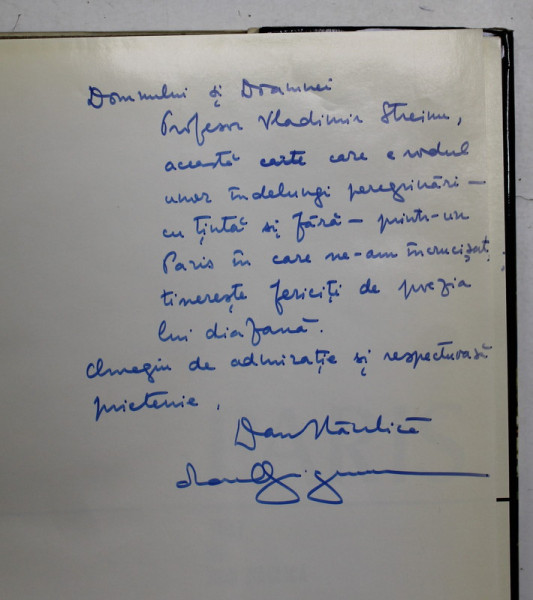 Domnului și Doamnei
Profesor Vladimir Streinu,
această carte care e rodul
unor îndelungi peregrinări —
cu țintă și fără — printr-un
Paris în care ne-am încrucișat,
tinerește fericiți de poezia
lui diafană.
Omagiu de admirație și respectuoasă
prietenie,
Dan Hăulică